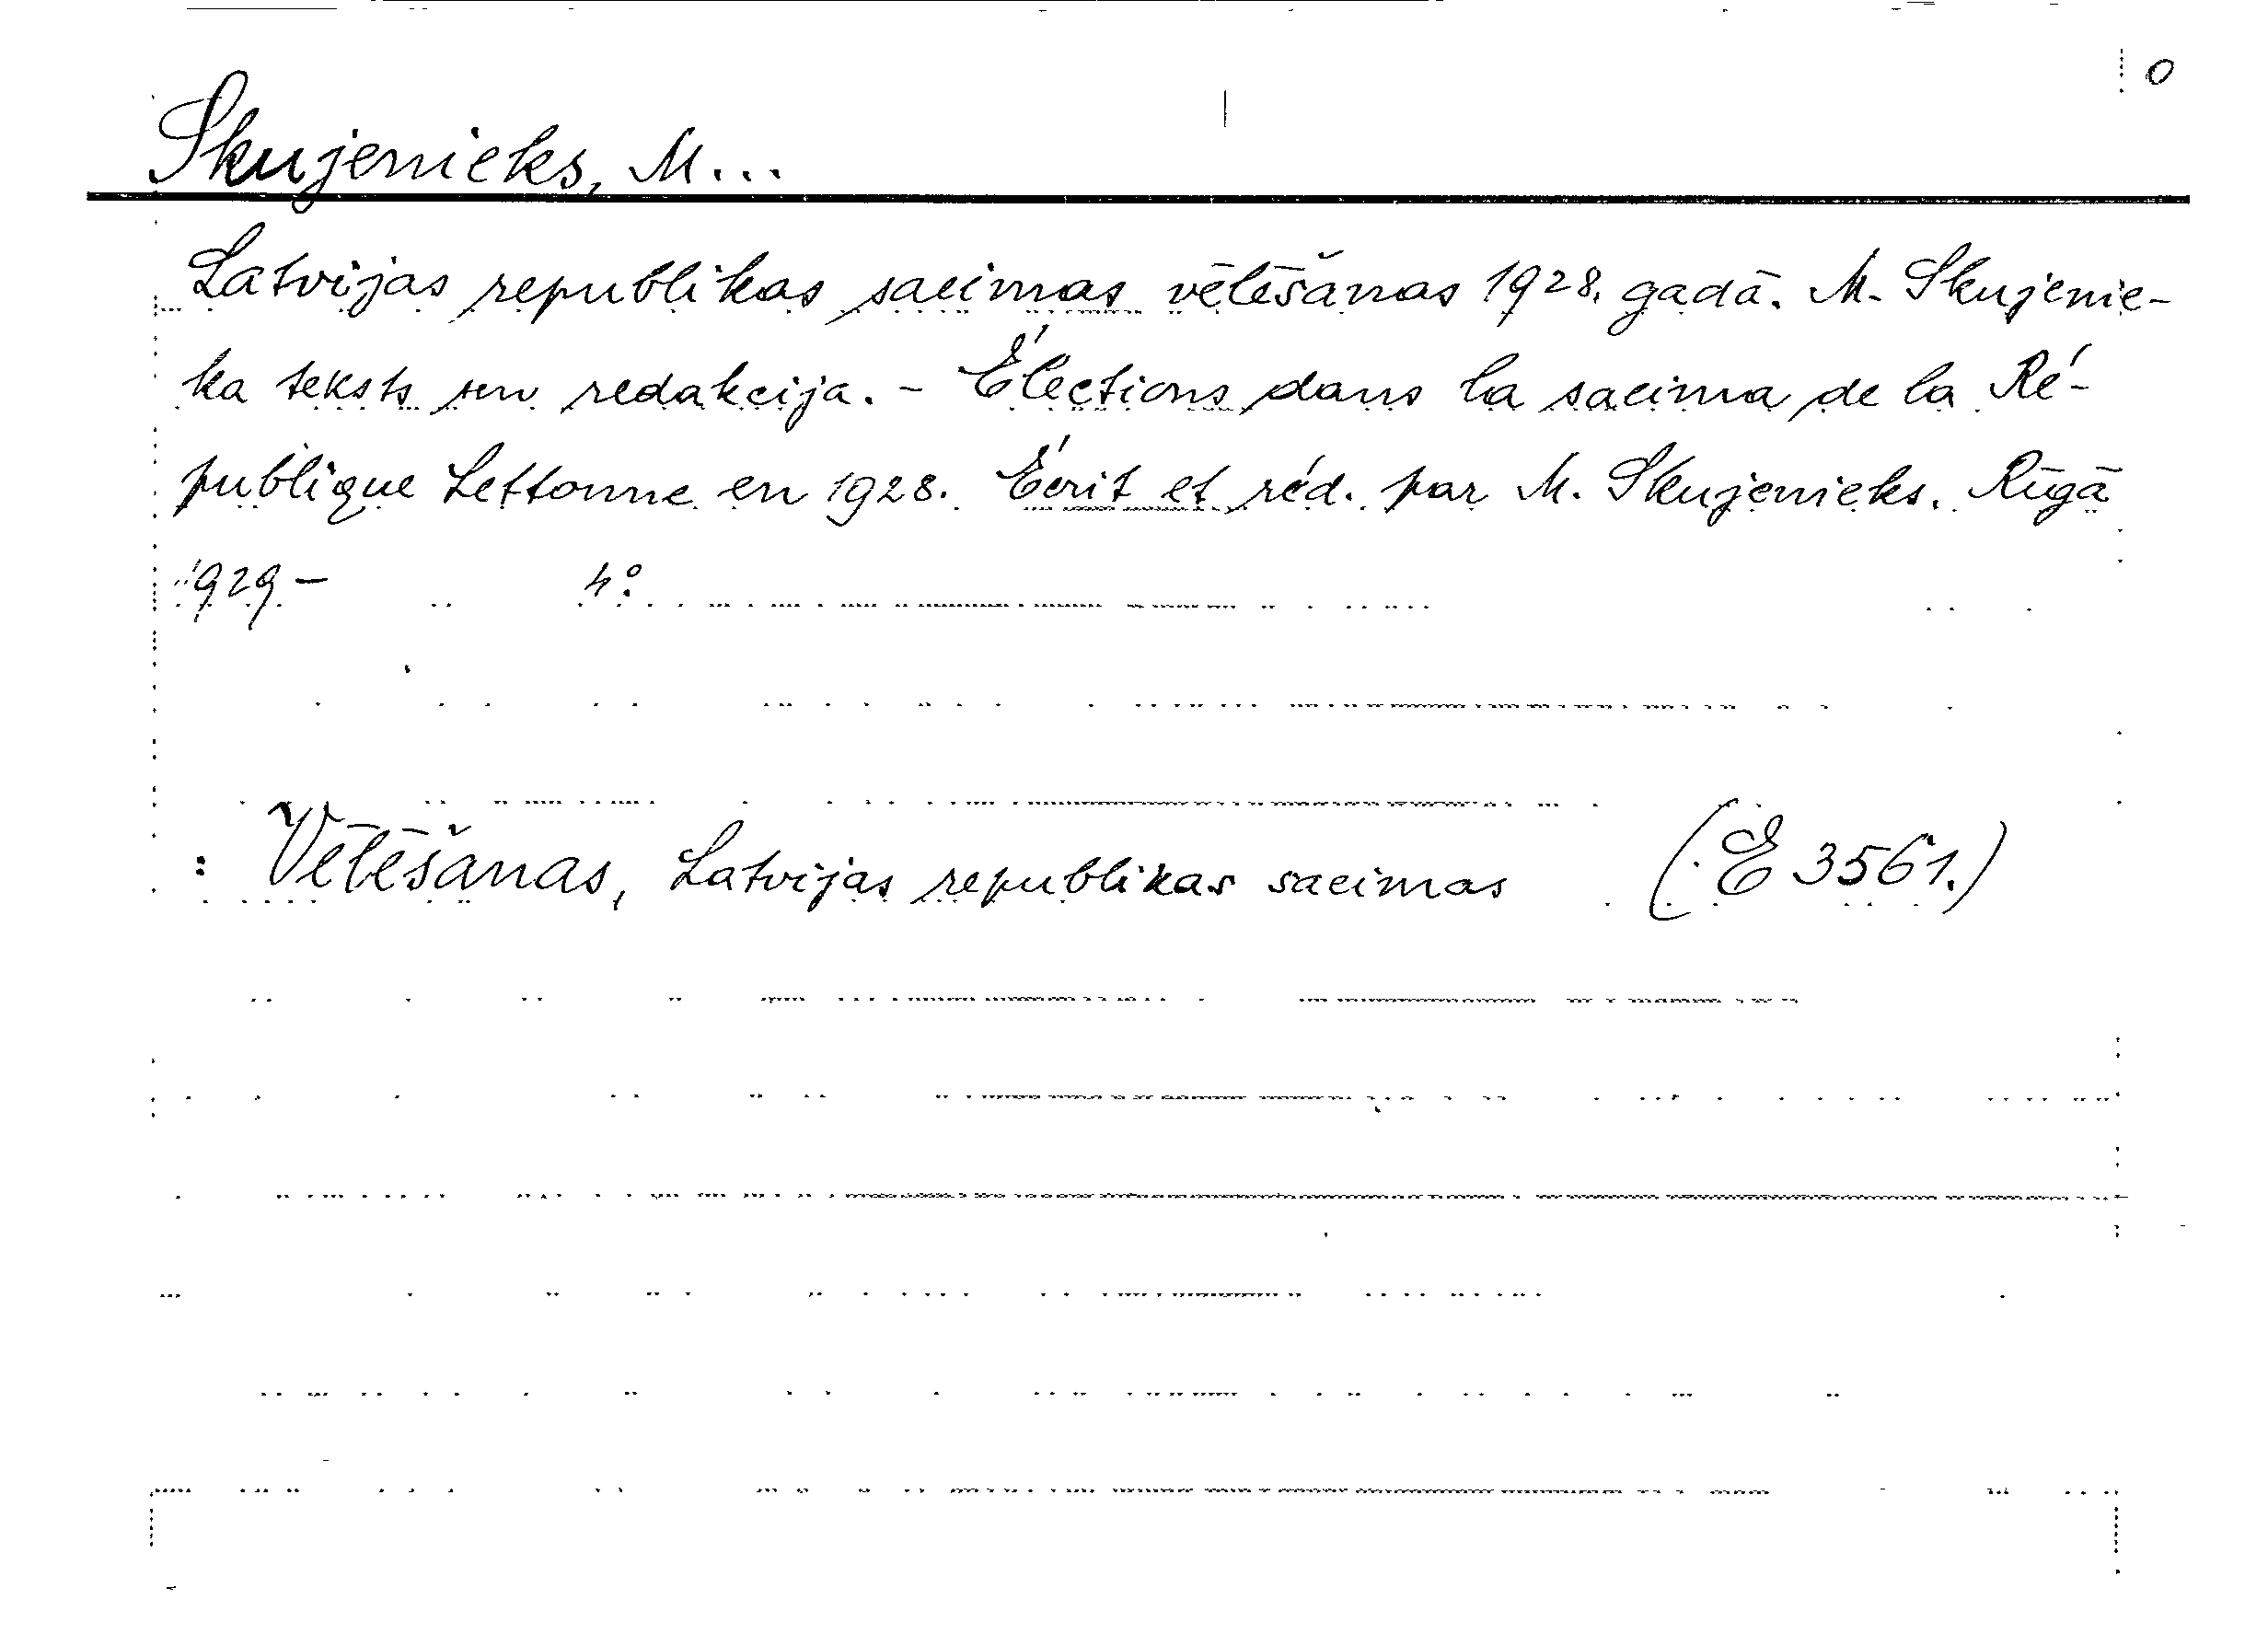 0
Skujenieks, M...
Latvijas republikas saeimas vēlēšanas 1928. gadā. M. Skujenie-
ka teksts un redakcija. - Élections dans la saeima de la Ré-
publique Lettonne en 1928. Écrit et réd. par M. Skujenieks. Rīgā
1929- 4:o
: Vēlēšanas, Latvijas republikas saeimas (E 3561.)